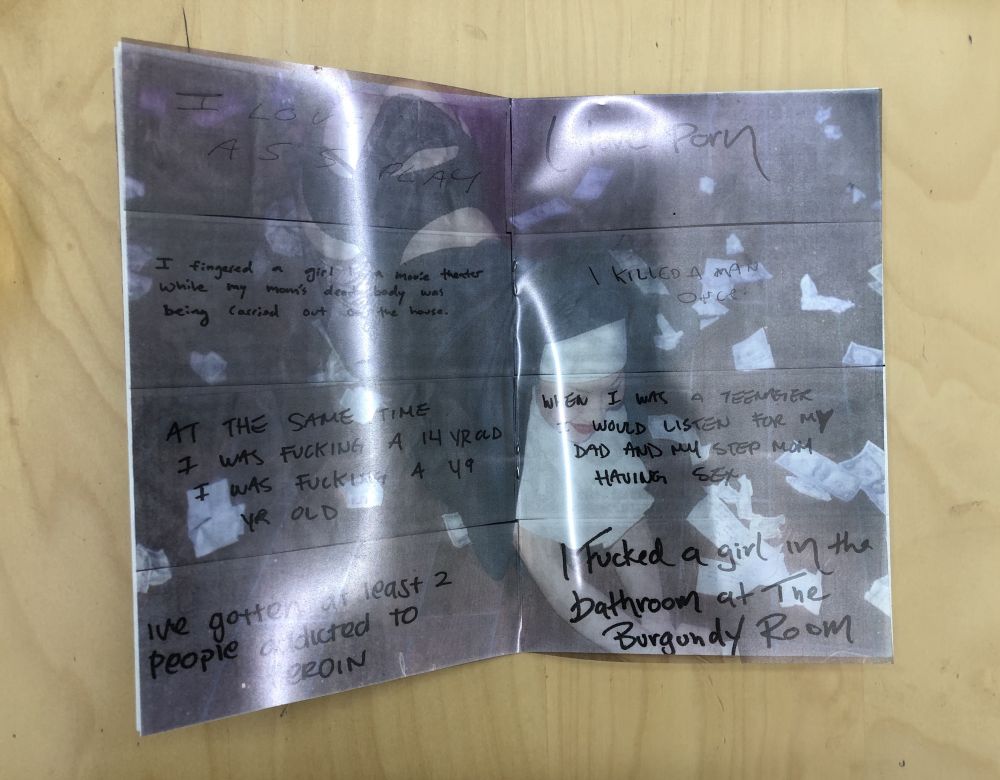 I LOVE
ASS PLAY
I fingered a girl in a movie theater
while my mom's dead body was
being carried out of the house.
AT THE SAME TIME
I WAS FUCKING A 14 YR OLD
I WAS FUCKING A 49
YR OLD
IVE gotten at least 2
people addicted to
HEROIN
I love Porn
I KILLED A MAN
ONCE.
WHEN I WAS A TEENAGER
I WOULD LISTEN FOR MY
DAD AND MY STEP MOM
HAVING SEX
I Fucked a girl in the
bathroom at The
Burgundy Room